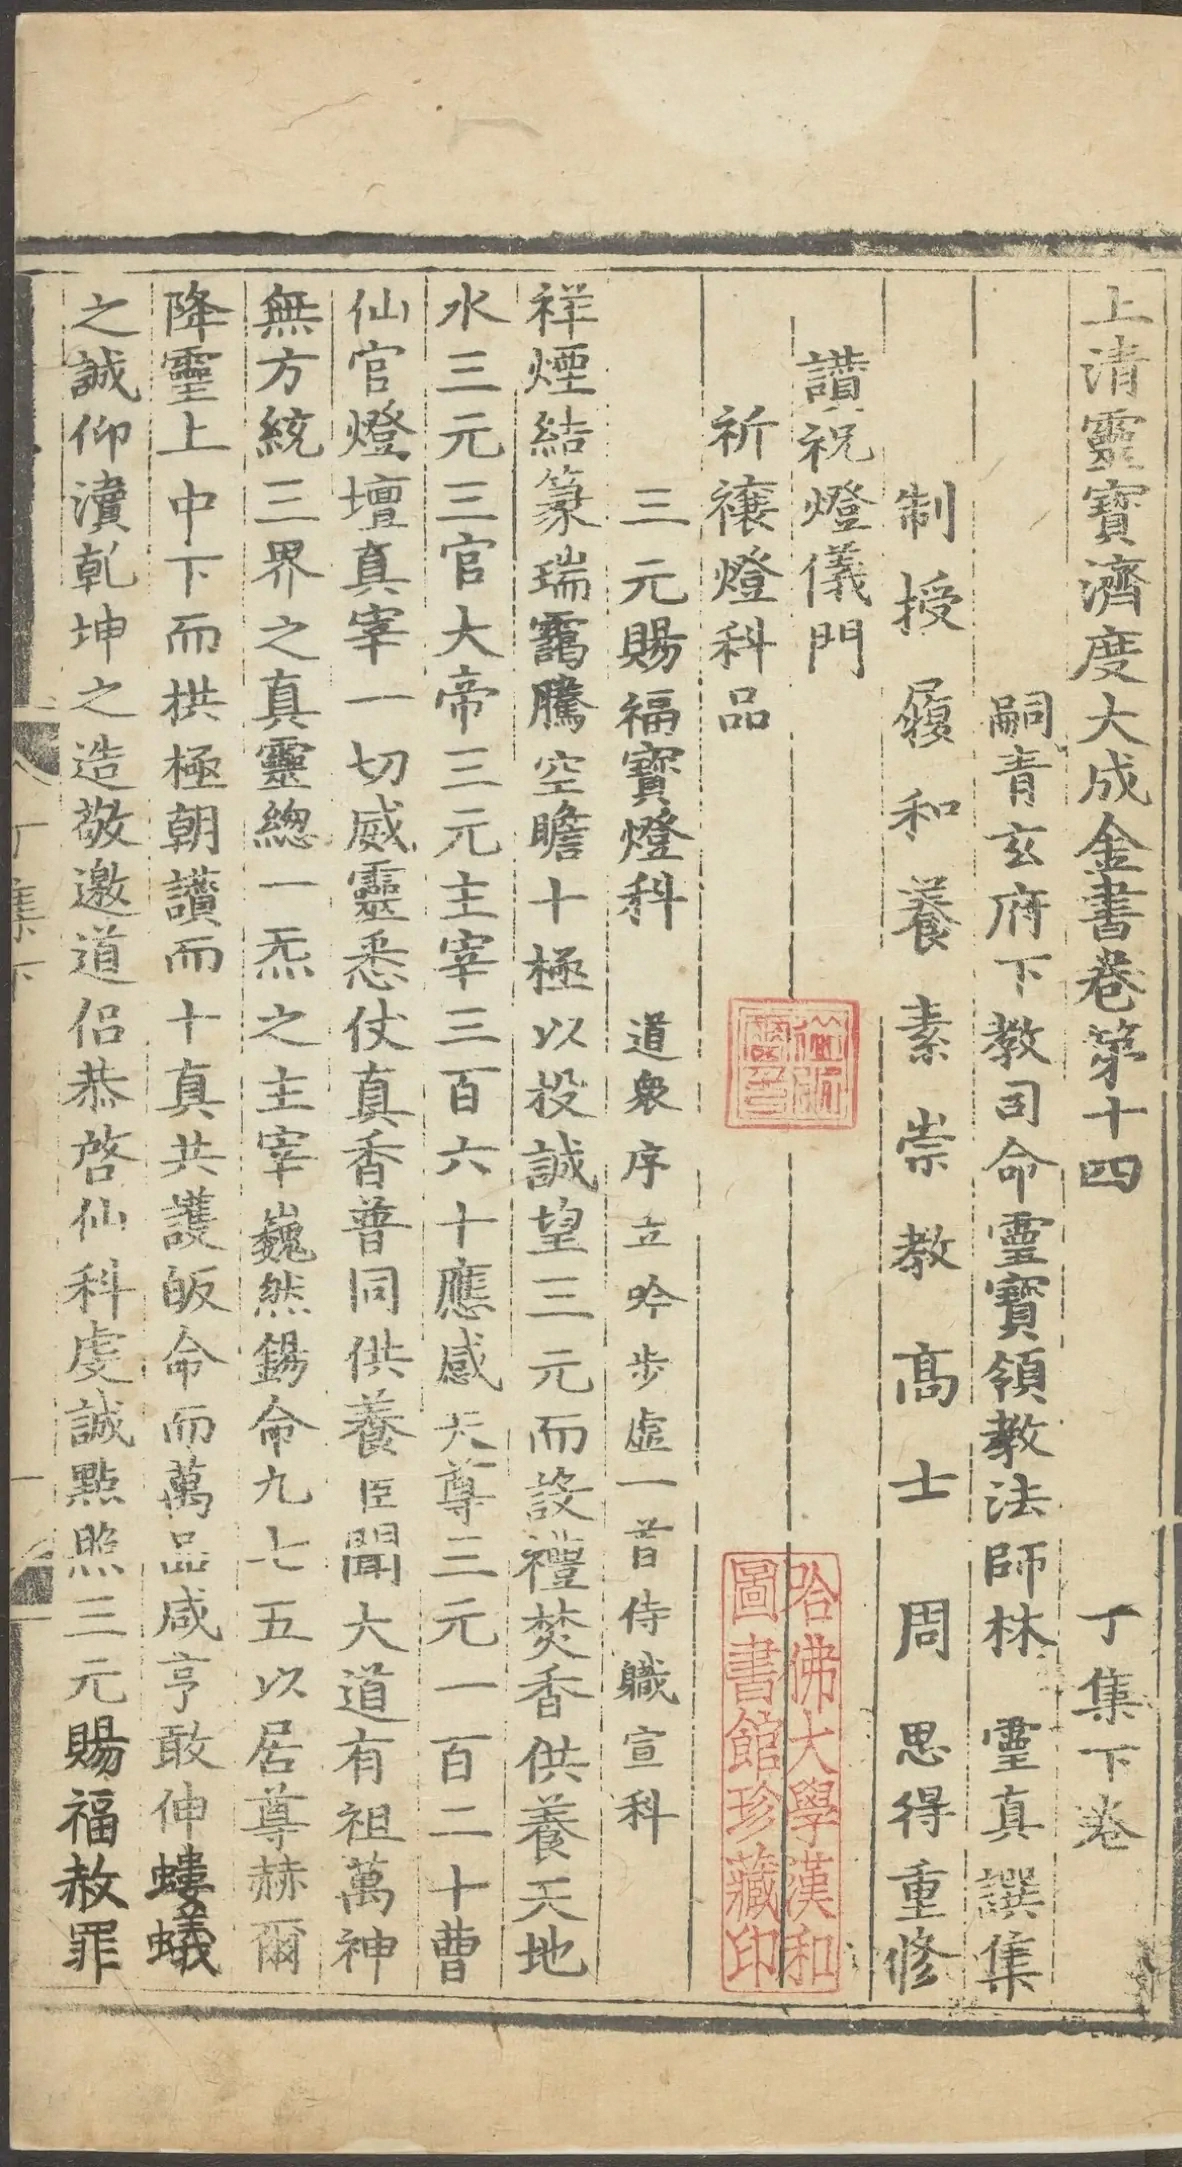 上清靈寶濟度大成金書卷第十四 丁集下卷
嗣青玄府下教司命靈寶領教法師林 靈真 譔集
制授履和養素崇教高士周思得重修
讚祝燈儀門
祈禳燈科品
三元賜福寶燈科 道衆序立吟步虛一首侍職宣科
祥煙結篆瑞靄騰空瞻十極以投誠望三元而設禮焚香供養天地
水三元三官大帝三元主宰三百六十應感天尊三元一百二十曹
仙官燈壇真宰一切威靈悉仗真香普同供養臣聞大道有祖萬神
無方統三界之真靈緫一炁之主宰巍然錫命九七五以居尊赫爾
降靈上中下而拱極朝讚而十真共護皈命而萬品咸亨敢伸螻蟻
之誠仰瀆乾坤之造敬邀道侶恭啓仙科虔誠點照三元賜福赦罪
丁集下
哈佛大學漢和
圖書館珍藏印